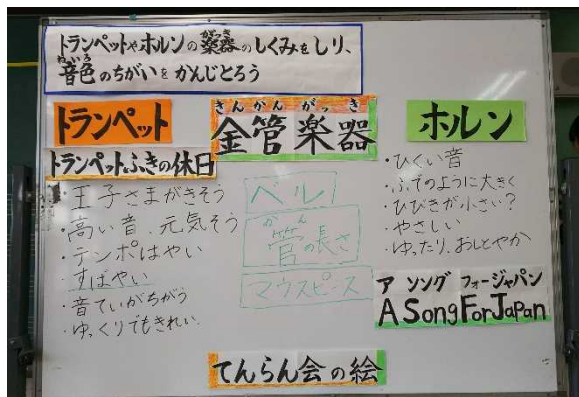 トランペットやホルンの楽器のしくみをしり、
音色のちがいをかんじとろう
トランペット
トランペットふきの休日
・王子さまがきそう
・高い音、元気そう
・テンポはやい
・すばやい
・音ていがちがう
・ゆっくりでもきれい。
きんかんがっき
金管楽器
ベル
かん
管の長さ
マウスピース
ホルン
・ひくい音
・ふでのように大きく
・ひびきが小さい?
・やさしい
・ゆったり、おしとやか
ア ソング フォージャパン
A Song For Japan
てんらん会の絵